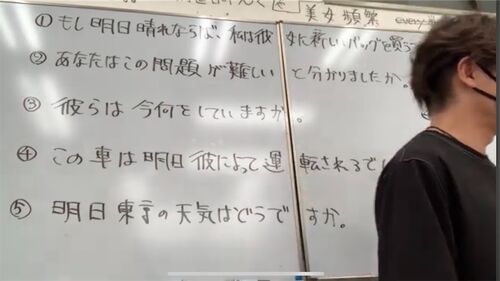 美女頻繁 every
① もし明日晴れならば、私は彼女に新しいバッグを買う
② あなたはこの問題が難しいと分かりましたか。
③ 彼らは今何をしていますか。
④ この車は明日彼によって運転されるで
⑤ 明日東京の天気はどうですか。